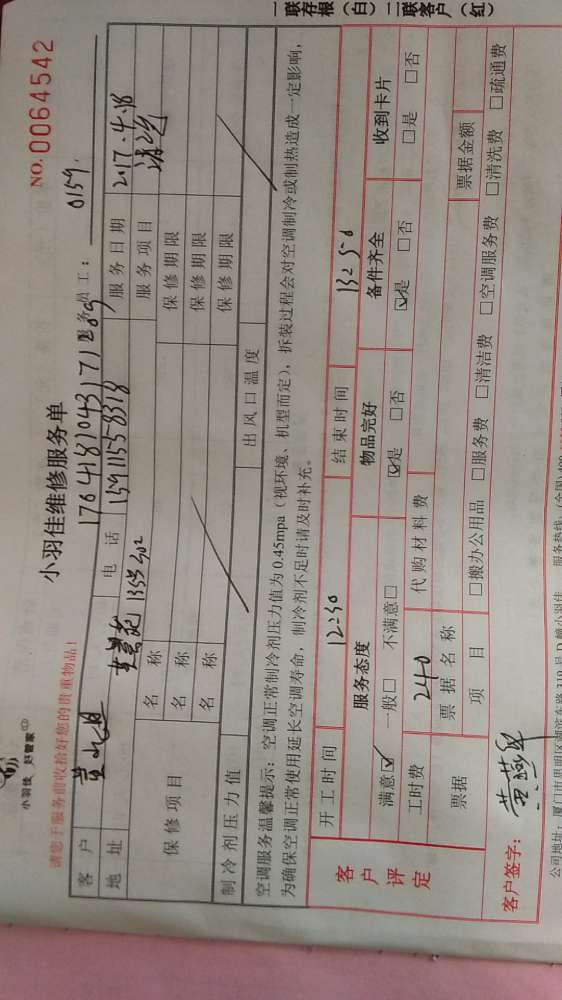 一联存根（白）二联客户（红）
小羽佳 好管家
NO.0064542
小羽佳维修服务单
请您于服务前收拾好您的贵重物品！
1704181043171289 服务员工： 0159
客户 电话 15911558318 服务日期 2017.4.18
地址 服务项目
保修项目 名称 保修期限
名称 保修期限
名称 保修期限
制冷剂压力值 出风口温度
空调服务温馨提示：空调正常制冷剂压力值为0.45mpa（视环境、机型而定），拆装过程会对空调制冷或制热造成一定影响，
为确保空调正常使用延长空调寿命，制冷剂不足时请及时补充。
客户评定
开工时间 12:30 结束时间 13250
服务态度 物品完好 备件齐全 收到卡片
满意☑ 一般□ 不满意□ ☑是 □否 ☑是 □否 □是 □否
工时费 240 代购材料费
票据 票据名称 票据金额
项目 □搬办公用品 □服务费 □清洁费 □空调服务费 □清洗费 □疏通费
客户签字：
公司地址：厦门市思明区
服务热线：(全国)400